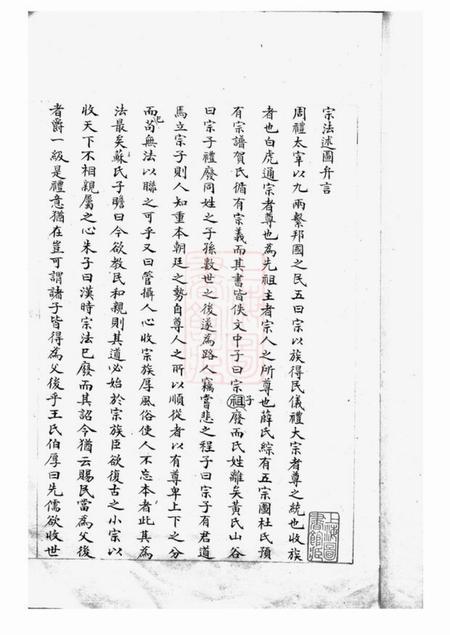 宗法述圖弁言
周禮太宰以九兩繫邦國之民五曰宗以族得民儀禮大宗者尊之統也收族
者也白虎通宗者尊也為先祖主者宗人之所尊也薛氏綜有五宗圖杜氏預
有宗譜賀氏循有宗義而其書皆佚文中子曰宗祖廢而氏姓離矣黃氏山谷
子
曰宗子禮廢同姓之子孫數世之後遂為路人竊嘗悲之程子曰宗子有君道
焉立宗子則人知重本朝廷之勢自尊人之所以順從者以有尊卑上下之分
而苟無法以聯之可乎又曰管攝人心收宗族厚風俗使人不忘本者此其為
已
法最矣蘇氏子瞻曰今欲教民和親則其道必始於宗族臣欲復古之小宗以
收天下不相親屬之心朱子曰漢時宗法已廢而其詔令猶云賜民當為父後
者爵一級是禮意猶在豈可謂諸子皆得為父後乎王氏伯厚曰先儒欲收世
上海圖書館藏